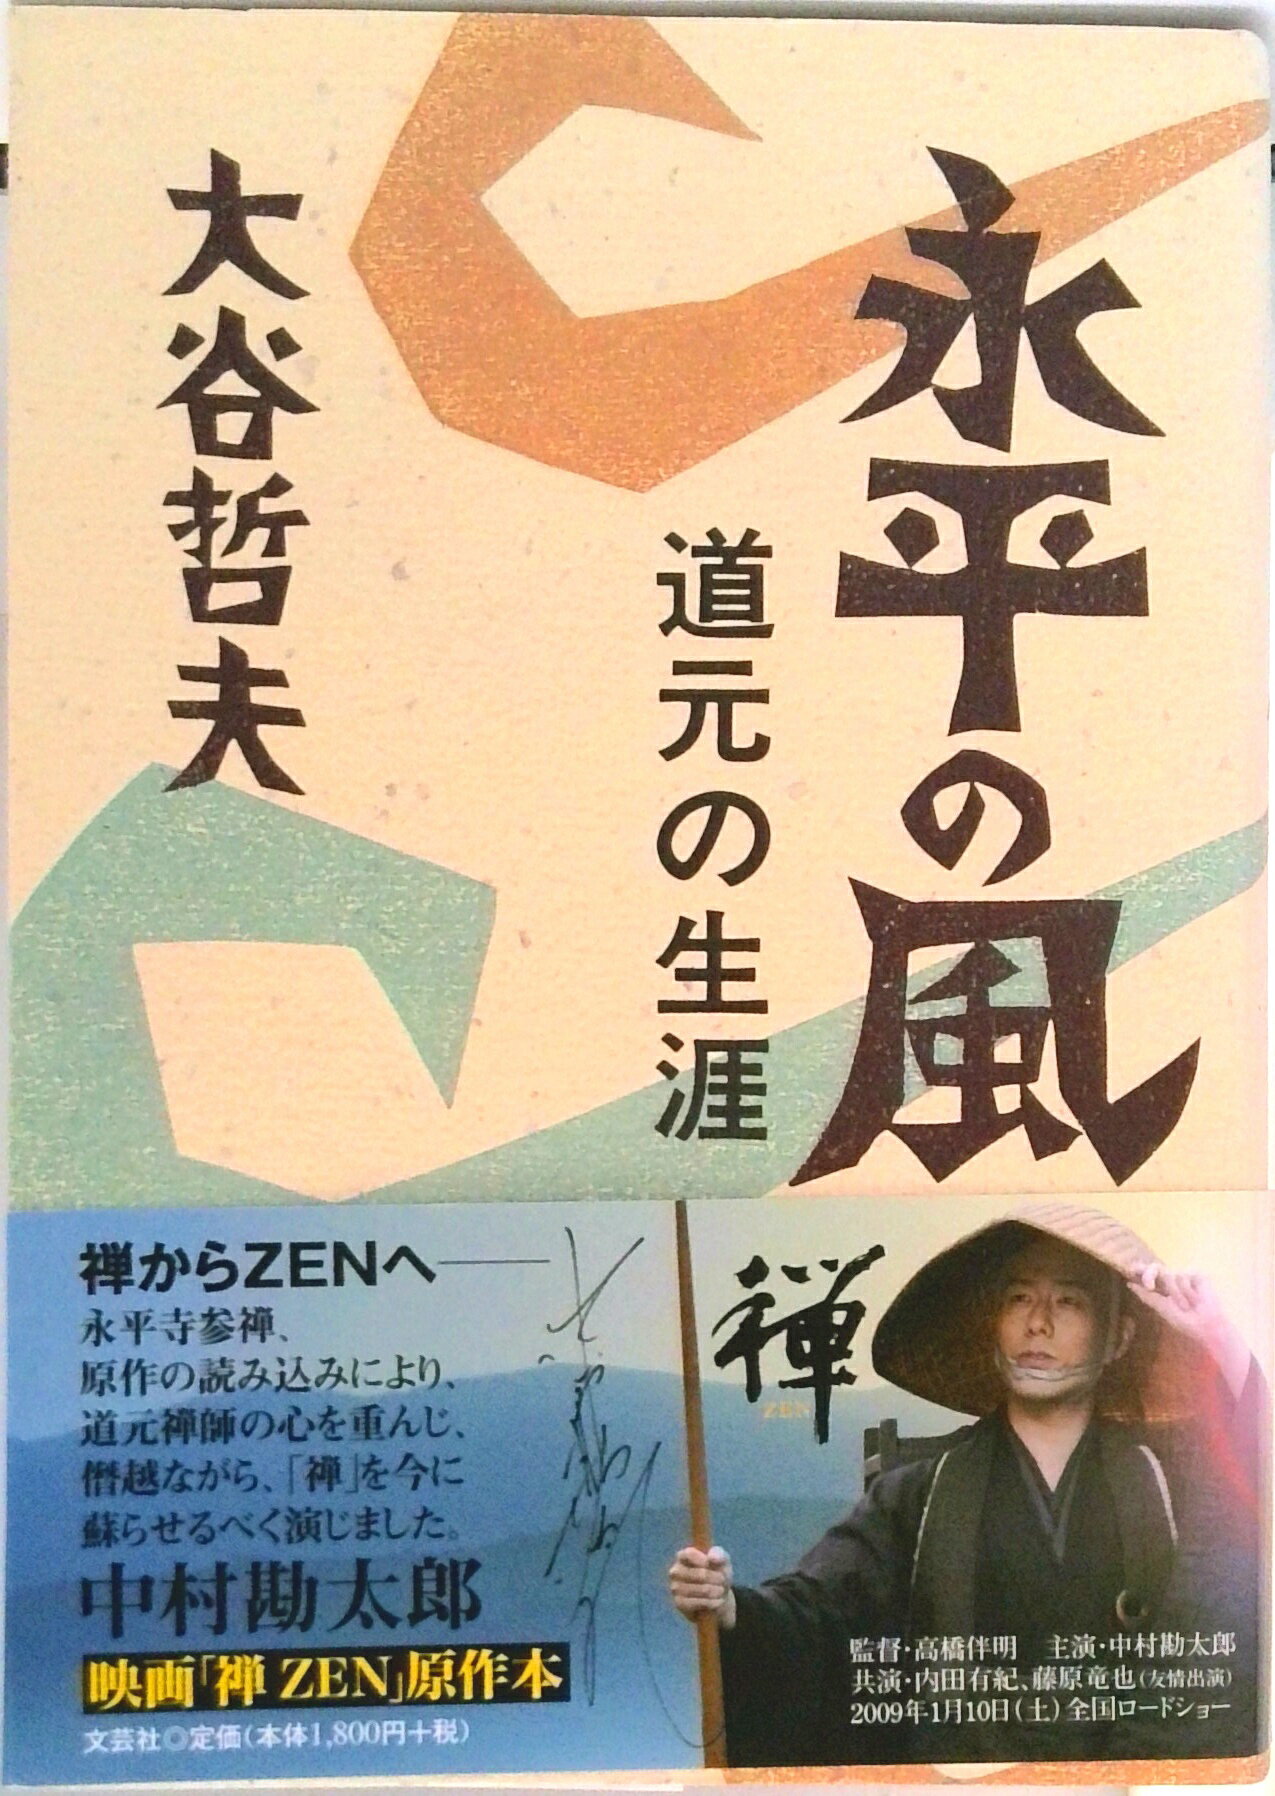 永平の風
道元の生涯
大谷哲夫
禅からZENへ――
永平寺参禅、
原作の読み込みにより、
道元禅師の心を重んじ、
僭越ながら、「禅」を今に
蘇らせるべく演じました。
中村勘太郎
映画「禅 ZEN」原作本
文芸社◎定価(本体1,800円+税)
禅
ZEN
監督・高橋伴明　主演・中村勘太郎
共演・内田有紀、藤原竜也(友情出演)
2009年1月10日(土)全国ロードショー